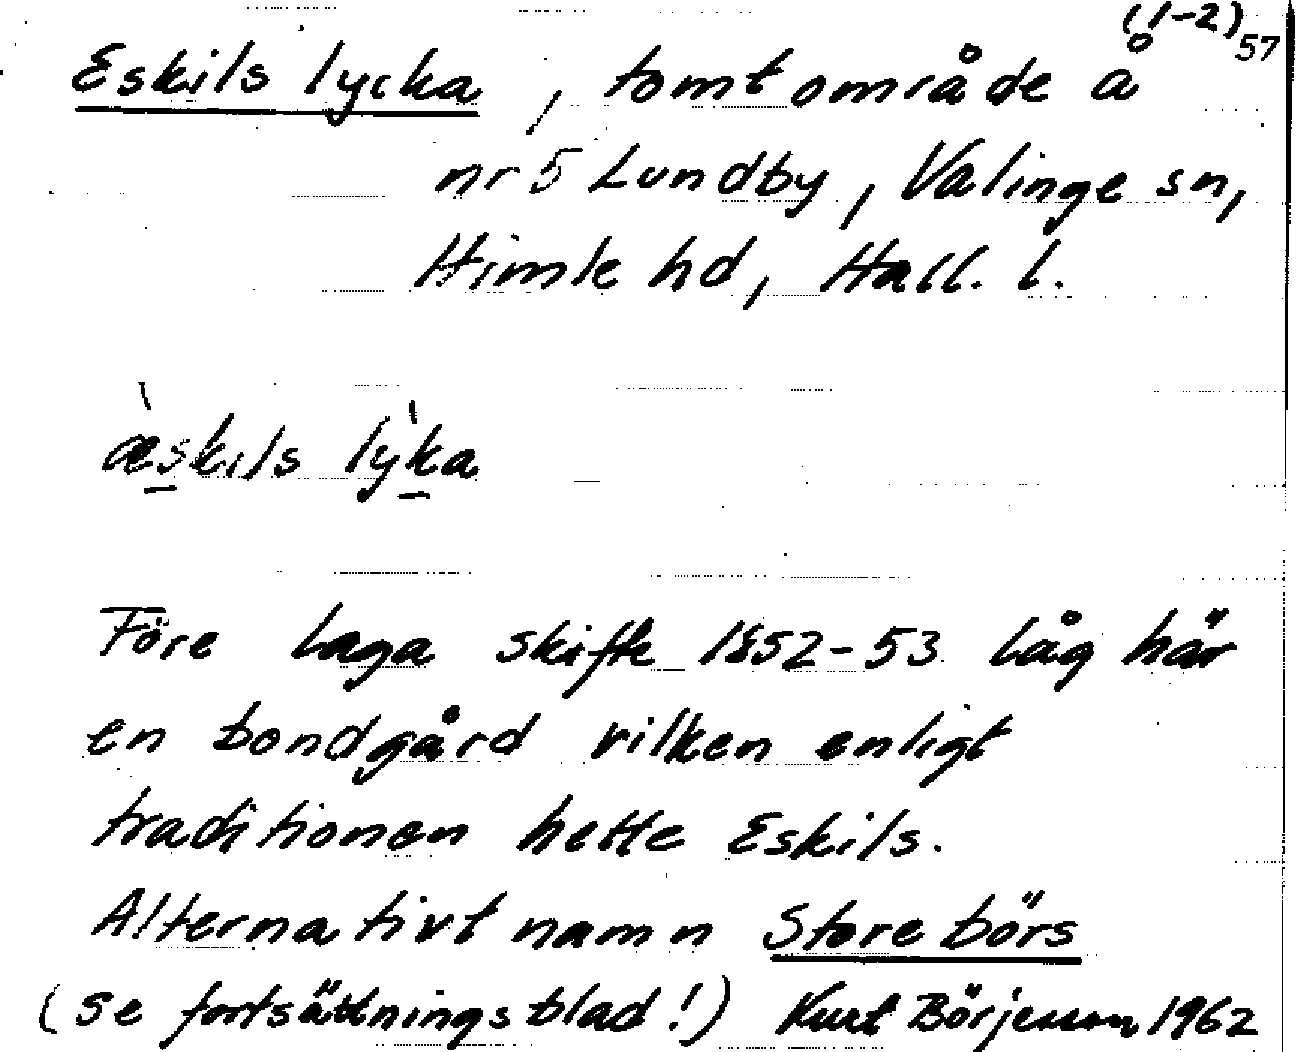 (1-2) 57
Eskils lycka, tomtområde å
nr 5 Lundby, Valinge sn,
Himle hd, Hall. l.
æ̀skils lỳka
Före laga skifte 1852-53 låg här
en bondgård vilken enligt
traditionen hette Eskils.
Alternativt namn Store börs
(se fortsättningsblad!) Kurt Börjesson 1962